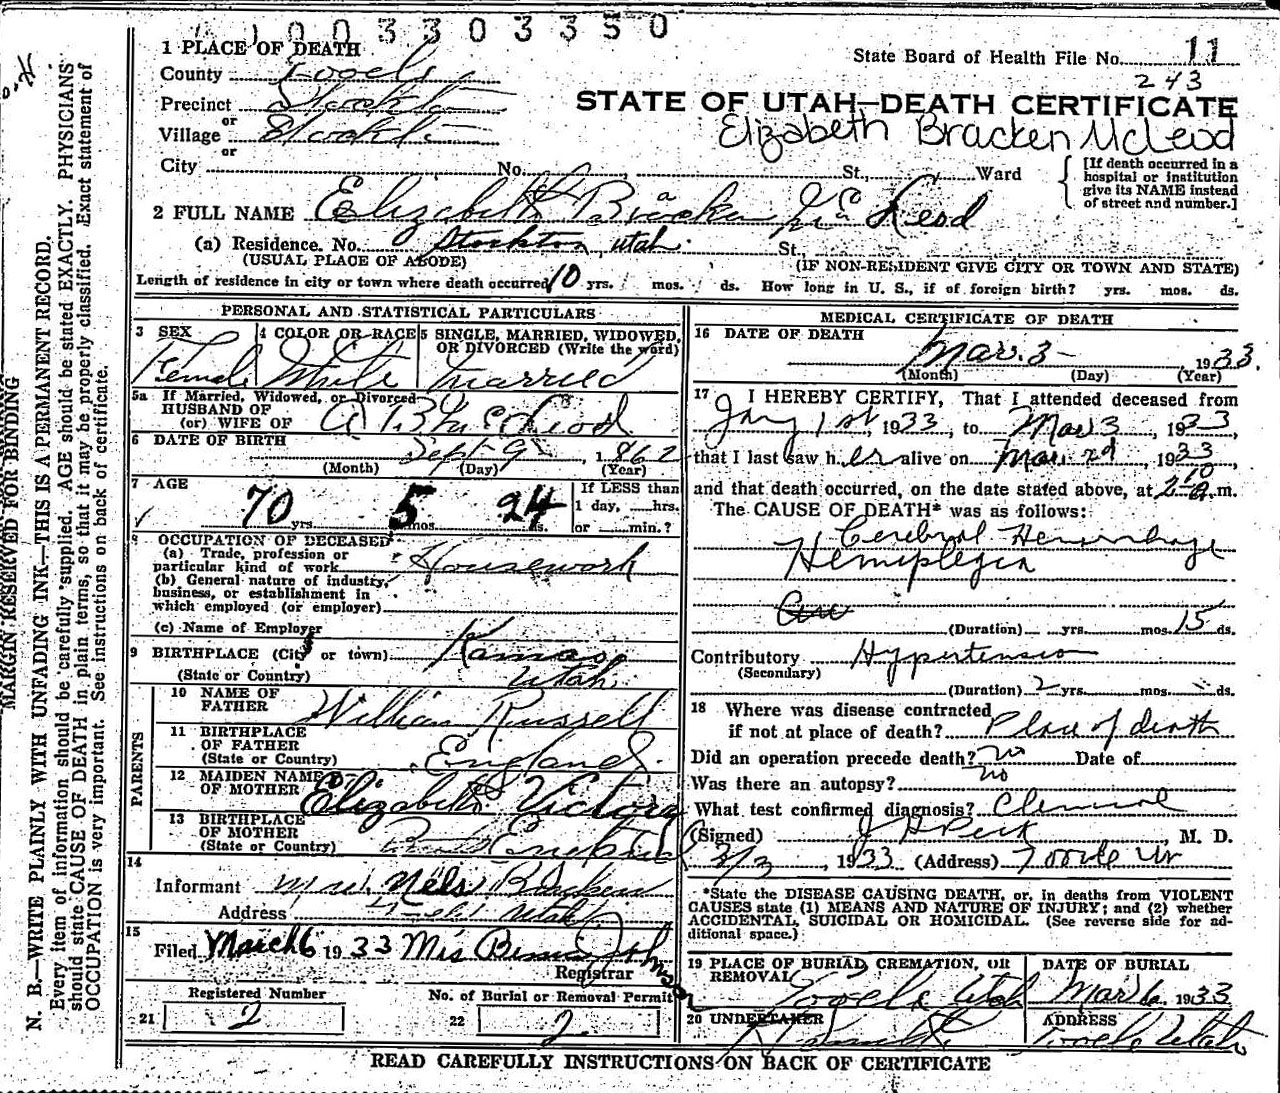 1003303350
1 PLACE OF DEATH
State Board of Health File No. 11
County Tooele
243
Precinct Stockton
STATE OF UTAH—DEATH CERTIFICATE
or
Village Stockton
Elizabeth Bracken McLeod
or
City No. St., Ward
[If death occurred in a hospital or institution give its NAME instead of street and number.]
2 FULL NAME Elizabeth Bracken McLeod
(a) Residence. No. Stockton, Utah. St.
(USUAL PLACE OF ABODE) (IF NON-RESIDENT GIVE CITY OR TOWN AND STATE)
Length of residence in city or town where death occurred 10 yrs. mos. ds. How long in U. S., if of foreign birth? yrs. mos. ds.
PERSONAL AND STATISTICAL PARTICULARS
3 SEX 4 COLOR OR RACE 5 SINGLE, MARRIED, WIDOWED, OR DIVORCED (Write the word)
Female White Married
5a If Married, Widowed, or Divorced
HUSBAND OF
(or) WIFE OF A B McLeod
6 DATE OF BIRTH Sept 9, 1862
(Month) (Day) (Year)
7 AGE
70 yrs 5 mos. 24 ds.
If LESS than
1 day, hrs.
or min.?
8 OCCUPATION OF DECEASED
(a) Trade, profession or
particular kind of work Housework
(b) General nature of industry,
business, or establishment in
which employed (or employer)
(c) Name of Employer
9 BIRTHPLACE (City or town) Kamas,
(State or Country) Utah.
PARENTS
10 NAME OF
FATHER William Russell
11 BIRTHPLACE
OF FATHER
(State or Country) England.
12 MAIDEN NAME
OF MOTHER Elizabeth Victory
13 BIRTHPLACE
OF MOTHER
(State or Country)
14
Informant Nels Bracken
Address Utah
15
Filed March 6 1933 Mis Johnson
Registrar
Registered Number No. of Burial or Removal Permit
21 2 22 2
MEDICAL CERTIFICATE OF DEATH
16 DATE OF DEATH
Mar. 3 1933.
(Month) (Day) (Year)
17 I HEREBY CERTIFY, That I attended deceased from
Jay 1st, 1933, to Mar 3, 1933,
that I last saw her alive on Mar. 2d, 1933
and that death occurred, on the date stated above, at 2 10 A.m.
The CAUSE OF DEATH* was as follows:
Cerebral Hemorrhage
Hemiplegia
(Duration) yrs. mos. 15 ds.
Contributory Hypertension
(Secondary)
(Duration) 2 yrs. mos. ds.
18 Where was disease contracted
if not at place of death? Place of death
Did an operation precede death? no Date of
Was there an autopsy? no
What test confirmed diagnosis? Clinical
(Signed) J H Peck, M. D.
3/3, 1933 (Address) Tooele Ut
*State the DISEASE CAUSING DEATH, or, in deaths from VIOLENT
CAUSES state (1) MEANS AND NATURE OF INJURY; and (2) whether
ACCIDENTAL, SUICIDAL OR HOMICIDAL. (See reverse side for ad-
ditional space.)
19 PLACE OF BURIAL, CREMATION, OR REMOVAL DATE OF BURIAL
Tooele Utah Mar 6 1933
20 UNDERTAKER ADDRESS
Tooele Utah
READ CAREFULLY INSTRUCTIONS ON BACK OF CERTIFICATE
MARGIN RESERVED FOR BINDING
N. B.—WRITE PLAINLY WITH UNFADING INK—THIS IS A PERMANENT RECORD.
Every item of information should be carefully supplied. AGE should be stated EXACTLY. PHYSICIANS
should state CAUSE OF DEATH in plain terms, so that it may be properly classified. Exact statement of
OCCUPATION is very important. See instructions on back of certificate.